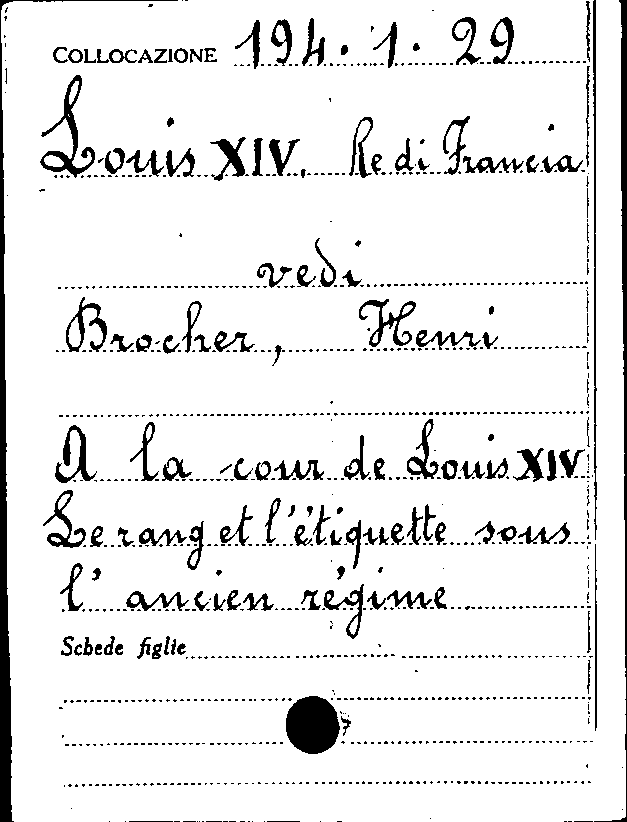 COLLOCAZIONE 194. 1. 29
Louis XIV. Re di Francia
vedi
Brocher, Henri
A la cour de Louis XIV
Le rang et l'étiquette sous
l'ancien régime
Schede figlie